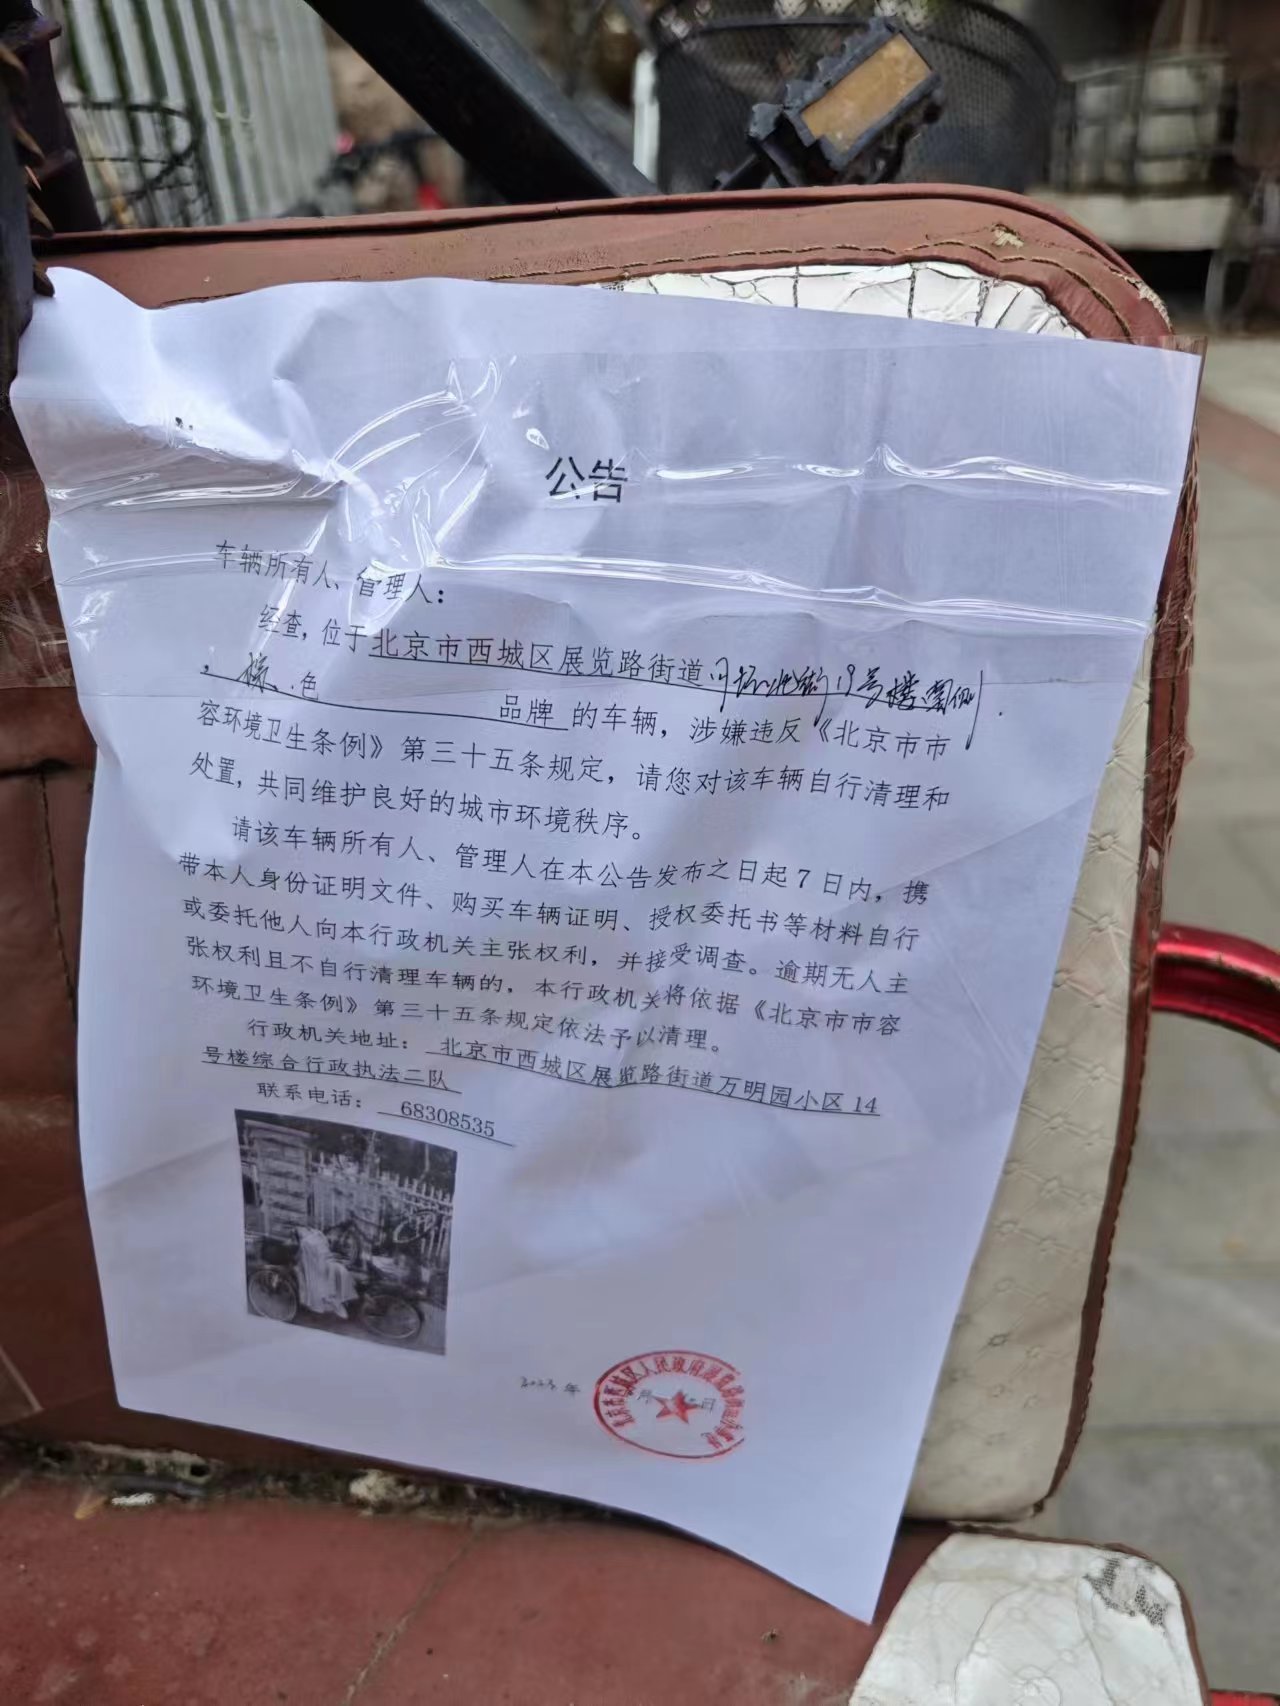 公告
车辆所有人、管理人：
经查，位于北京市西城区展览路街道 19号楼南侧
棕色 品牌的车辆，涉嫌违反《北京市市
容环境卫生条例》第三十五条规定，请您对该车辆自行清理和
处置，共同维护良好的城市环境秩序。
请该车辆所有人、管理人在本公告发布之日起7日内，携
带本人身份证明文件、购买车辆证明、授权委托书等材料自行
或委托他人向本行政机关主张权利，并接受调查。逾期无人主
张权利且不自行清理车辆的，本行政机关将依据《北京市市容
环境卫生条例》第三十五条规定依法予以清理。
行政机关地址：北京市西城区展览路街道万明园小区14
号楼综合行政执法二队
联系电话：68308535
年 月 日
北京市西城区人民政府展览路街道办事处